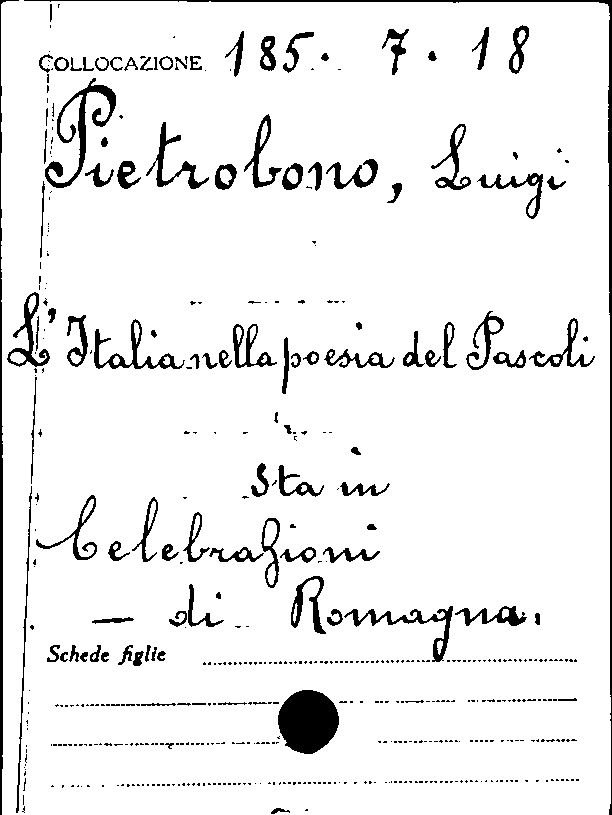 COLLOCAZIONE 185. 7. 18
Pietrobono, Luigi
L'Italia nella poesia del Pascoli
Sta in
Celebrazioni
— di Romagna.
Schede figlie